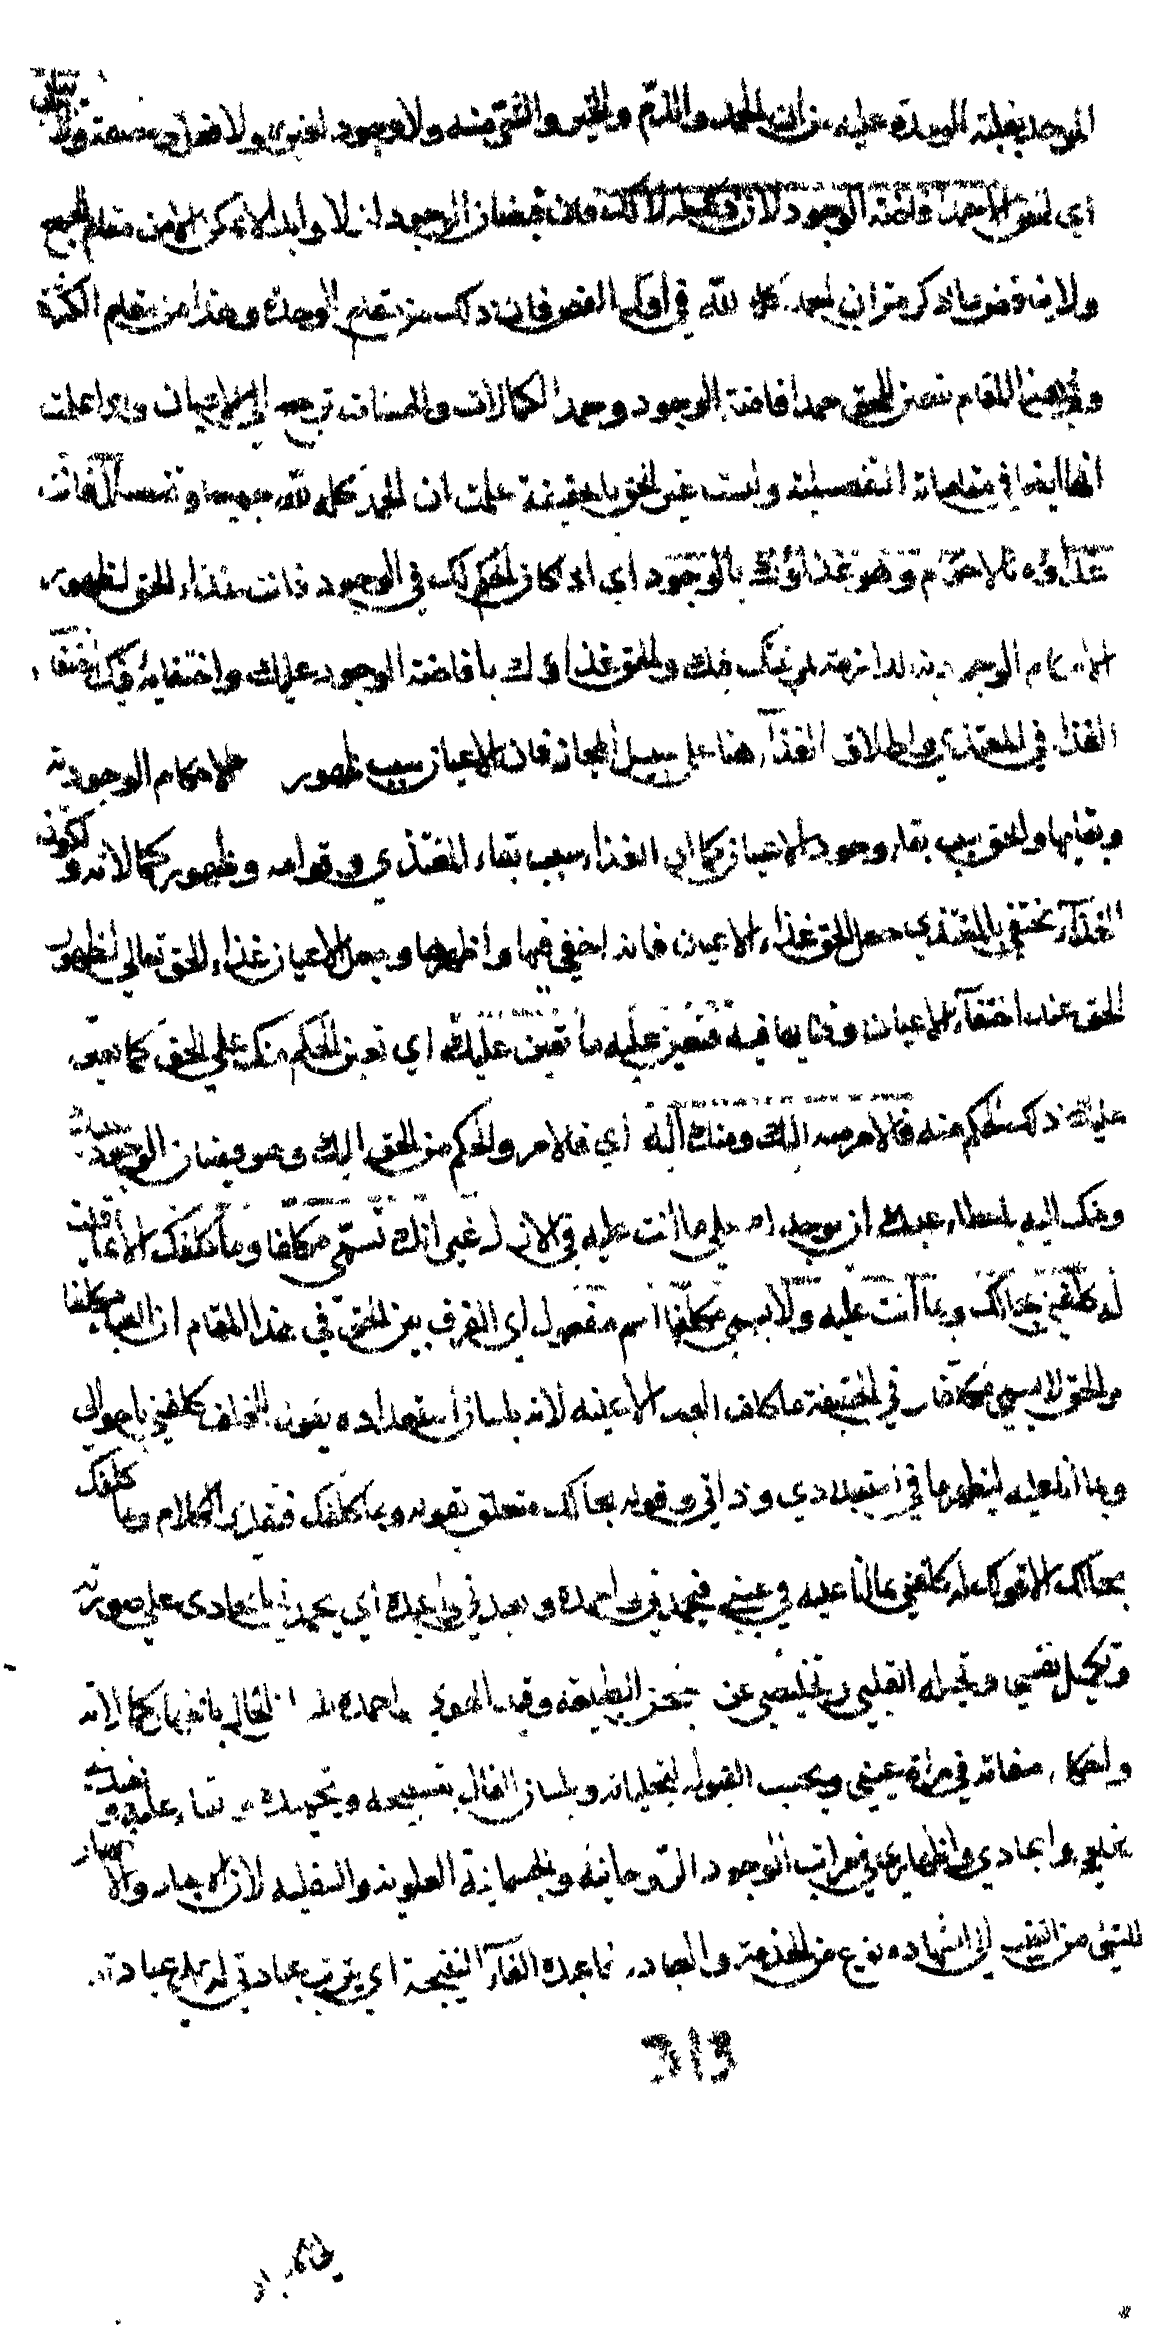 الموحد بغلبة الوحدة عليه من ان الحمد والذم والخير والشر منه ولا وجود لغيره ولا فعل ولا صفة وليس
اي ليس الا حمد افاضة الوجود لان ذلك له لا لك فان فيضان الوجود ازلا وابدا لا يمكن الا من مقام الجمع
ولا يناقض ما ذكر من ان الحمد كله لله في اول الفص فان ذلك من مقام الوحدة وهذا من مقام الكثرة
وفي هذا المقام نصيب الحق حمد افاضة الوجود وحمد الكمالات والحسنات ترجع الى الاعيان واذا علمت
انها ايضا في مقاماته التفصيلية وليست غير الحق بالحقيقة علمت ان الحمد كله لله جمعا وتفصيلا فانت
غذاؤه بالاحكام وهو غذاؤك بالوجود اي اذ كان الحكم لك في الوجود فانت غذاء الحق لظهور
الاحكام الوجودية اللازمة لمرتبتك فيك والحق غذاؤك بافاضة الوجود عليك واختفائه فيك اختفاء
الغذاء في المغتذي واطلاق الغذاء هنا على سبيل المجاز فان الاعيان سبب ظهور الاحكام الوجودية
وبقائها والحق سبب بقاء وجود الاعيان كما ان الغذاء سبب بقاء المغتذي وقوامه وظهور كمالاته ولكون
الغذاء يختفي بالمغتذي جعل الحق غذاء الاعيان فانه اختفى فيها واظهرها وجعل الاعيان غذاء للحق تعالى لظهور
الحق عند اختفاء الاعيان وفنائها فيه فتعين عليه ما تعين عليك اي تعين الحكم منك على الحق كما تعين
عليك ذلك الحكم منه فالامر منه اليك ومنك اليه اي فالامر والحكم من الحق اليك وهو فيضان الوجود عليك
ومنك اليه باعطاء عينك ان يوجدك على ما انت عليه في الازل غير انك تسمى مكلفا وما كلفك الا بما قلت
له كلفني بحالك وبما انت عليه ولا يسمى مكلفا اسم مفعول اي الفرق بين الحق في هذا المقام ان العبد يسمى مكلفا
والحق لا يسمى مكلفا وفي الحقيقة ما كلف العبد الا عينه لانه بلسان استعداده يقول للحق كلفني باحوالي
وبما انا عليه ليظهر ما في استعدادي وذاتي وقوله بحالك متعلق بقوله وبما كلفك فتقدير الكلام وما كلفك
بحالك الا قولك له كلفني بما انا عليه في عيني فيحمدني واحمده ويعبدني واعبده اي يحمدني بايجادي على صورته
وتكميل نفسي وتجليه لقلبي وتخليصي عن سجن الطبيعة وقيد الهوى واحمده بلسان الحال باظهار كمالاته
واحكام صفاته في مرآة عيني وبحسب القبول لتجلياته وبلسان القال بتسبيحه وتحميده والثناء عليه ويعبدني
بخلقي وايجادي واظهاري في مراتب الوجود الروحانية والجسمانية العلوية والسفلية لان الايجاد والاظهار
للشئ من الغيب الى الشهادة نوع من الخدمة والعبادة فاعبده الفاء للنتيجة اي يترتب عبادتي له على عبادته
313